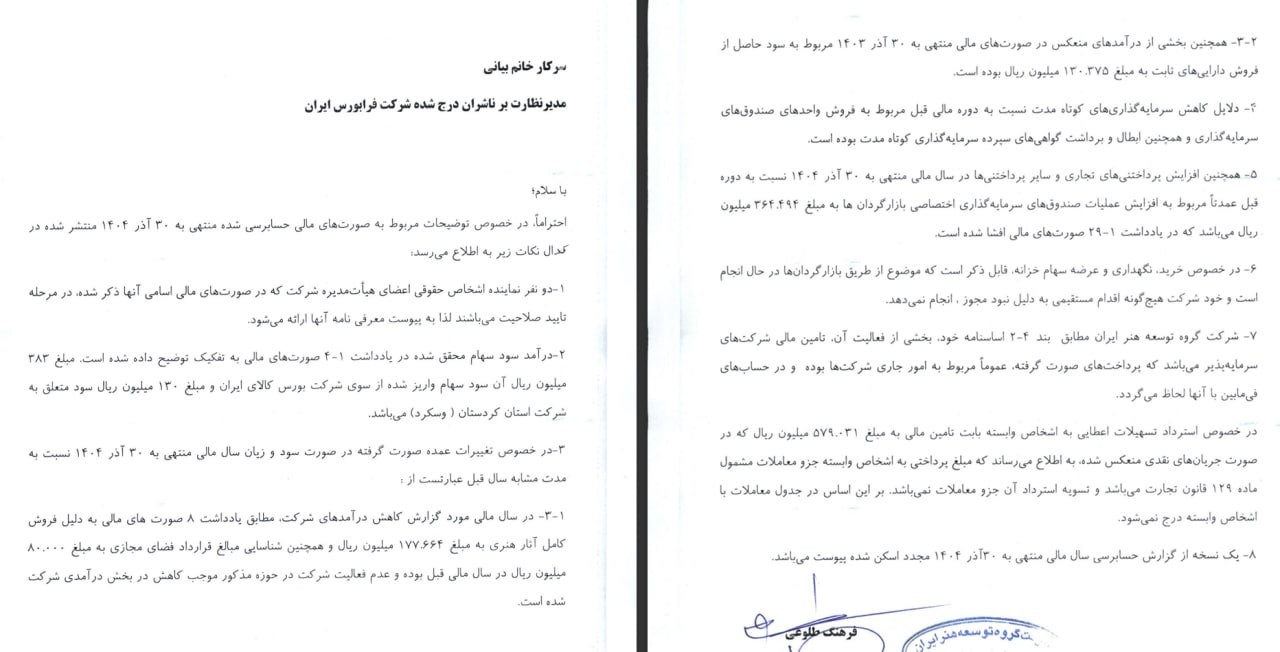 سرکار خانم بیانی
مدیرنظارت بر ناشران درج شده شرکت فرابورس ایران
با سلام؛
احتراماً، در خصوص توضیحات مربوط به صورت‌های مالی حسابرسی شده منتهی به ۳۰ آذر ۱۴۰۴ منتشر شده در
کدال نکات زیر به اطلاع می‌رسد:
۱-دو نفر نماینده اشخاص حقوقی اعضای هیأت‌مدیره شرکت که در صورت‌های مالی اسامی آنها ذکر شده، در مرحله
تایید صلاحیت می‌باشند لذا به پیوست معرفی نامه آنها ارائه می‌شود.
۲-درآمد سود سهام محقق شده در یادداشت ۱-۴ صورت‌های مالی به تفکیک توضیح داده شده است. مبلغ ۳۸۳
میلیون ریال آن سود سهام واریز شده از سوی شرکت بورس کالای ایران و مبلغ ۱۳۰ میلیون ریال سود متعلق به
شرکت استان کردستان ( وسکرد) می‌باشد.
۳-در خصوص تغییرات عمده صورت گرفته در صورت سود و زیان سال مالی منتهی به ۳۰ آذر ۱۴۰۴ نسبت به
مدت مشابه سال قبل عبارتست از :
۳-۱- در سال مالی مورد گزارش کاهش درآمدهای شرکت، مطابق یادداشت ۸ صورت های مالی به دلیل فروش
کامل آثار هنری به مبلغ ۱۷۷.۶۶۴ میلیون ریال و همچنین شناسایی مبالغ قرارداد فضای مجازی به مبلغ ۸۰.۰۰۰
میلیون ریال در سال مالی قبل بوده و عدم فعالیت شرکت در حوزه مذکور موجب کاهش در بخش درآمدی شرکت
شده است.
۳-۲- همچنین بخشی از درآمدهای منعکس در صورت‌های مالی منتهی به ۳۰ آذر ۱۴۰۳ مربوط به سود حاصل از
فروش دارایی‌های ثابت به مبلغ ۱۳۰.۳۷۵ میلیون ریال بوده است.
۴- دلایل کاهش سرمایه‌گذاری‌های کوتاه مدت نسبت به دوره مالی قبل مربوط به فروش واحدهای صندوق‌های
سرمایه‌گذاری و همچنین ابطال و برداشت گواهی‌های سپرده سرمایه‌گذاری کوتاه مدت بوده است.
۵- همچنین افزایش پرداختنی‌های تجاری و سایر پرداختنی‌ها در سال مالی منتهی به ۳۰ آذر ۱۴۰۴ نسبت به دوره
قبل عمدتاً مربوط به افزایش عملیات صندوق‌های سرمایه‌گذاری اختصاصی بازارگردان ها به مبلغ ۳۶۴.۴۹۴ میلیون
ریال می‌باشد که در یادداشت ۱-۲۹ صورت‌های مالی افشا شده است.
۶- در خصوص خرید، نگهداری و عرضه سهام خزانه، قابل ذکر است که موضوع از طریق بازارگردان‌ها در حال انجام
است و خود شرکت هیچ‌گونه اقدام مستقیمی به دلیل نبود مجوز ، انجام نمی‌دهد.
۷- شرکت گروه توسعه هنر ایران مطابق بند ۴-۲ اساسنامه خود، بخشی از فعالیت آن، تامین مالی شرکت‌های
سرمایه‌پذیر می‌باشد که پرداخت‌های صورت گرفته، عموماً مربوط به امور جاری شرکت‌ها بوده و در حساب‌های
فی‌مابین با آنها لحاظ می‌گردد.
در خصوص استرداد تسهیلات اعطایی به اشخاص وابسته بابت تامین مالی به مبلغ ۵۷۹.۰۳۱ میلیون ریال که در
صورت جریان‌های نقدی منعکس شده، به اطلاع می‌رساند که مبلغ پرداختی به اشخاص وابسته جزو معاملات مشمول
ماده ۱۲۹ قانون تجارت می‌باشد و تسویه استرداد آن جزو معاملات نمی‌باشد. بر این اساس در جدول معاملات با
اشخاص وابسته درج نمی‌شود.
۸- یک نسخه از گزارش حسابرسی سال مالی منتهی به ۳۰آذر ۱۴۰۴ مجدد اسکن شده پیوست می‌باشد.
فرهنگ طلوعی
گروه توسعه هنر ایران